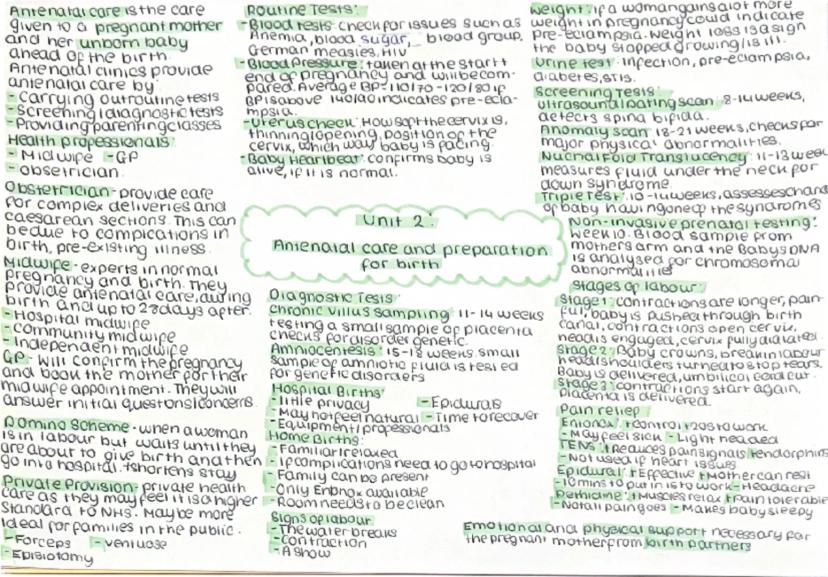 Antenatal care is the care
given to a pregnant mother
and her unborn baby
ahead of the birth.
Antenatal clinics provide
antenatal care by:
- Carrying out routine tests
- Screening/diagnostic tests
- Providing parenting classes
Health professionals:
- Midwife - GP
- obsetrician.
Obstetrician - provide care
for complex deliveries and
caesarean sections. This can
be due to compications in
birth, pre-existing illness.
Midwife - experts in normal
pregnancy and birth. They
provide antenatal care, during
birth and up to 28 days after.
- Hospital midwife
- Community midwife
- Independent midwife
GP - Will confirm the pregnancy
and book the mother for their
midwife appointment. They will
answer initial questons/concerns.
Domino Scheme - when a woman
is in labour but waits until they
are about to give birth and then
go into hospital. ↑shortens stay
Private Provision - private health
care as they may feel it is a higher
Standard to NHS. May be more
ideal for families in the public.
- Forceps - ventuose
- Episiotomy
Routine Tests:
- Blood tests - check for issues such as
Anemia, blood sugar, blood group,
German measles, HIV
- Blood Pressure: taken at the start
end of pregnancy and will be com-
pared. Average BP - 110/70 - 120/80 if
BP is above 140/90 indicates pre-ecla-
mpsia.
- Uterus check: How soft the cervix is,
thinning/opening, position of the
cervix, which way baby is facing.
- Baby Heartbeat: confirms baby is
alive, if it is normal.
Unit 2:
Antenatal care and preparation
for birth
Diagnostic Tests:
Chronic villus sampling 11-14 weeks
testing a small sample of placenta
checks for disorder genetic.
Amniocentesis: 15-18 weeks. small
sample of amniotic fluid is tested
for genetic disorders
Hospital Births:
- little privacy - Epidurals
- May not feel natural - Time to recover
- Equipment/professionals
Home Births:
- Familiar/relaxed
- If complications need to go to hospital
- Family can be present
- Only Entonox available
- Room needs to be clean
Signs of labour
- The water breaks
- Contraction
- A show
Weight: if a woman gains a lot more
weight in pregnancy could indicate
pre-eclampsia. Weight loss is a sign
the baby stopped growing/is ill.
Urine test: infection, pre-eclampsia,
diabetes, STIs.
Screening Tests:
Ultrasound dating scan: 8-14 weeks,
detects spina bifida.
Anomaly scan: 18-21 weeks, checks for
major physical abnormalities.
Nuchal Fold Translucency: 11-13 week
measures fluid under the neck for
down syndrome.
Triple Test: 10-14 weeks, assesses chanc
of baby having one of the syndromes
Non-invasive prenatal testing:
Week 10. Blood sample from
mothers arm and the Babys DNA
is analysed for chromosomal
abnormalities
Stages of labour:
Stage 1: contractions are longer, pain-
ful, baby is pushed through birth
canal, contractions open cervix,
head is engaged, cervix fully dialated.
Stage 2: Baby crowns, break in labour
head/shoulders turned to stop tears.
Baby is delivered, umbilical cord cut.
Stage 3: contractions start again,
placenta is delivered.
Pain relief
Entonox: ↑control ↑20s to work
- May feel sick - Light headed
TENs: ↑Reduces pain signals ↑endorphins
- Not used if heart issues
Epidural: ↑Effective ↑Mother can rest
- 10mins to put in is to work - Headache
Pethidine: ↑Muscles relax ↑Pain tolerable
- Not all pain goes - Makes baby sleepy
Emotional and physical support necessary for
the pregnant mother from birth partners